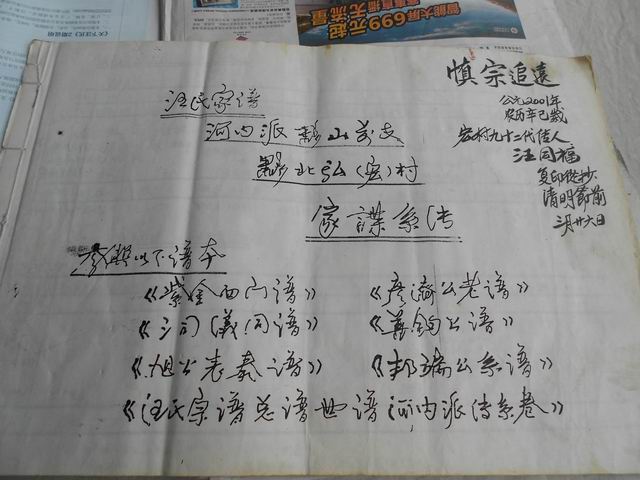 《天下汪氏》2期说明
智能大屏699元起
慎宗追遠
公元2001年
农历辛巳歲
宏村九十二代传人
汪同福
复印
清明節前
三月廿六日
汪氏家谱
河内派黟山
黟北弘(宏)村
家諜系传
参照以下谱本
《紫金西门谱》
《彦济公老谱》
《三司(義)同谱》
公谱》
《旭公表奏谱》
《邦瑞公系谱》
《汪氏宗谱总谱世谱河内派传系卷》